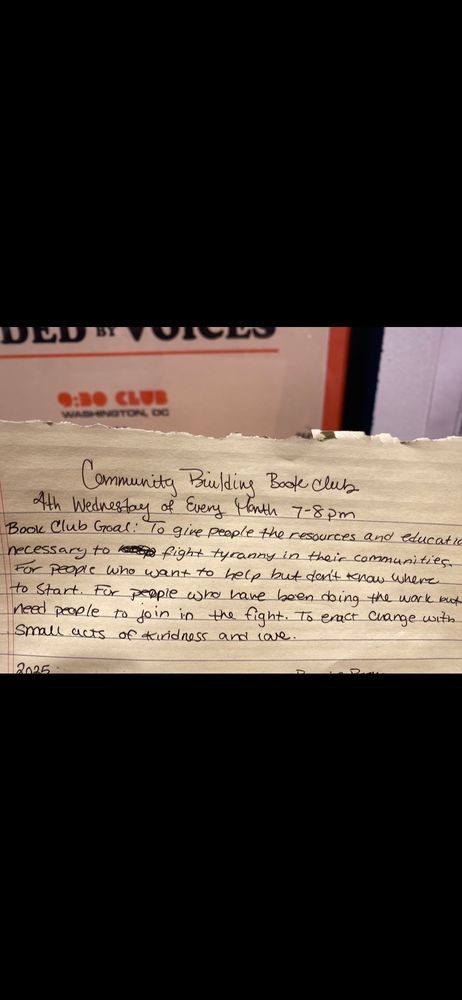 DED BY VOICES
9:30 CLUB
WASHINGTON, DC
Community Building Book Club
4th Wednesday of Every Month 7-8pm
Book Club Goal: To give people the resources and educatio
necessary to fight tyranny in their communities.
For people who want to help but don't know where
to start. For people who have been doing the work but
need people to join in the fight. To enact change with
small acts of kindness and love.
2025